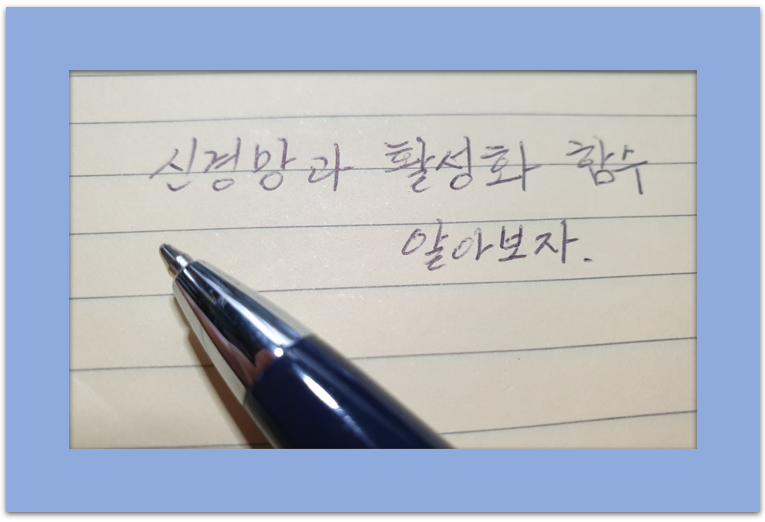 신경망과 활성화 함수
알아보자.